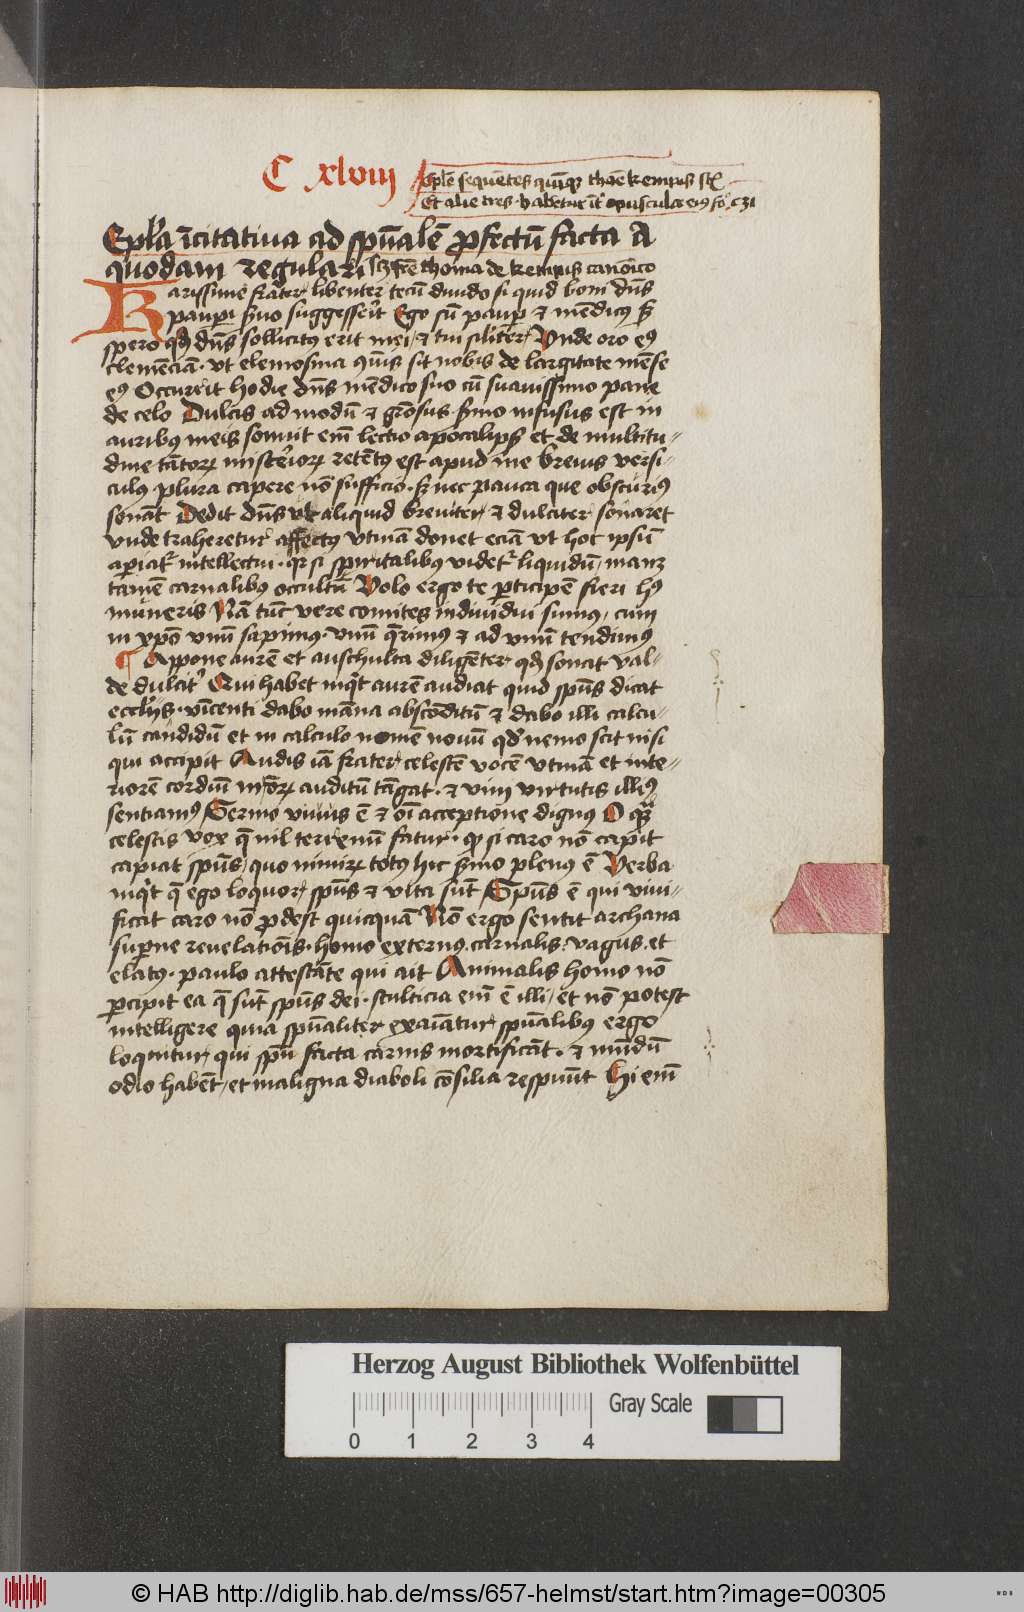 C xlviij
Eple sequētes quīq thōe kempis sūt
Et alie tres habetur īt opuscula eius fo c31
Epl'a īcitatiua ad spūalē ꝓfectū facta A
quodam regulari sꝫ frē thoma de kempis canōico
Karissime frater libenter tecū diuido si quid boni dn̄s
paup̲i s̄uo suggesserit Ego sū paup̲ et mēdicꝰ sꝫ
spero qđ dn̄s sollicitꝰ erit mei et tui sil'iter Vnde oro eiꝰ
clemēciā vt elemosina quis sit nobis de largitate mēse
eiꝰ Occurrit hodie dn̄s mēdico suo cū suauissimo pane
de celo Dulcis ad modū et grōsus s̄mo infusus est in
auribꝰ meis sonuit em̄ lectio apocalipsꝫ et de multitu-
dine tātoꝝ misterioꝝ retētꝰ est apud me breuis versi-
culꝰ plura capere nō sufficio sꝫ nec pauca que obscuriꝰ
sonāt Dedit dn̄s vt aliquid breuiter et dulciter sonaret
vnde traheretur affectꝰ vtinā donet eciā vt hoc ipsū
ap̲iat' intellectui qꝛ si spiritalibꝰ videt' liquidū manꝫ
tamē carnalibꝰ occultū Volo ergo te p̲ticipē fieri hꝰ
muneris Nā tūc vere comites indiuidui sumus cum
in xp̄o vnū sapimus vnū q̄rimus et ad vnū tendimꝰ
Appone aurē et auschulta diligēter qđ sonat val-
de dulcit' Qui habet inqt aurē audiat quid spūs dicat
eccl'ijs vīcenti dabo māna abscōditū et dabo illi calcu-
lū candidū et in calculo nomē nouū qđ nemo scit nisi
qui accipit Audis iā frater celestē vocē vtinā et inte-
riorē cordiū nr̄oꝝ auditū tāgat et vim virtutis illiꝰ
sentiamꝰ Sermo viuus ē et oī acceptione dignus O qꝫ
celestis vox q̄ nil terrenū fatur qꝫ si caro nō capit
capiat spūs quo nimiꝝ totꝰ hic s̄mo plenꝰ ē Verba
inqt q̄ ego loquor spūs et vita sūt Spūs ē qui viui-
ficat caro nō ꝓdest quicquā Nō ergo sentit archana
sup̲ne reuelatiōis homo externꝰ carnalis vagus et
elatꝰ paulo attestāte qui ait Animalis homo nō
p̲cipit ea q̄ sūt spūs dei stulticia em̄ ē illi et nō potest
intelligere quia spūaliter exaīatur spūalibꝰ ergo
loquitur qui spū facta carnis mortificāt et mūdū
odio habēt et maligna diaboli cōsilia respuūt Hi em̄
Herzog August Bibliothek Wolfenbüttel
Gray Scale
0 1 2 3 4
© HAB http://diglib.hab.de/mss/657-helmst/start.htm?image=00305